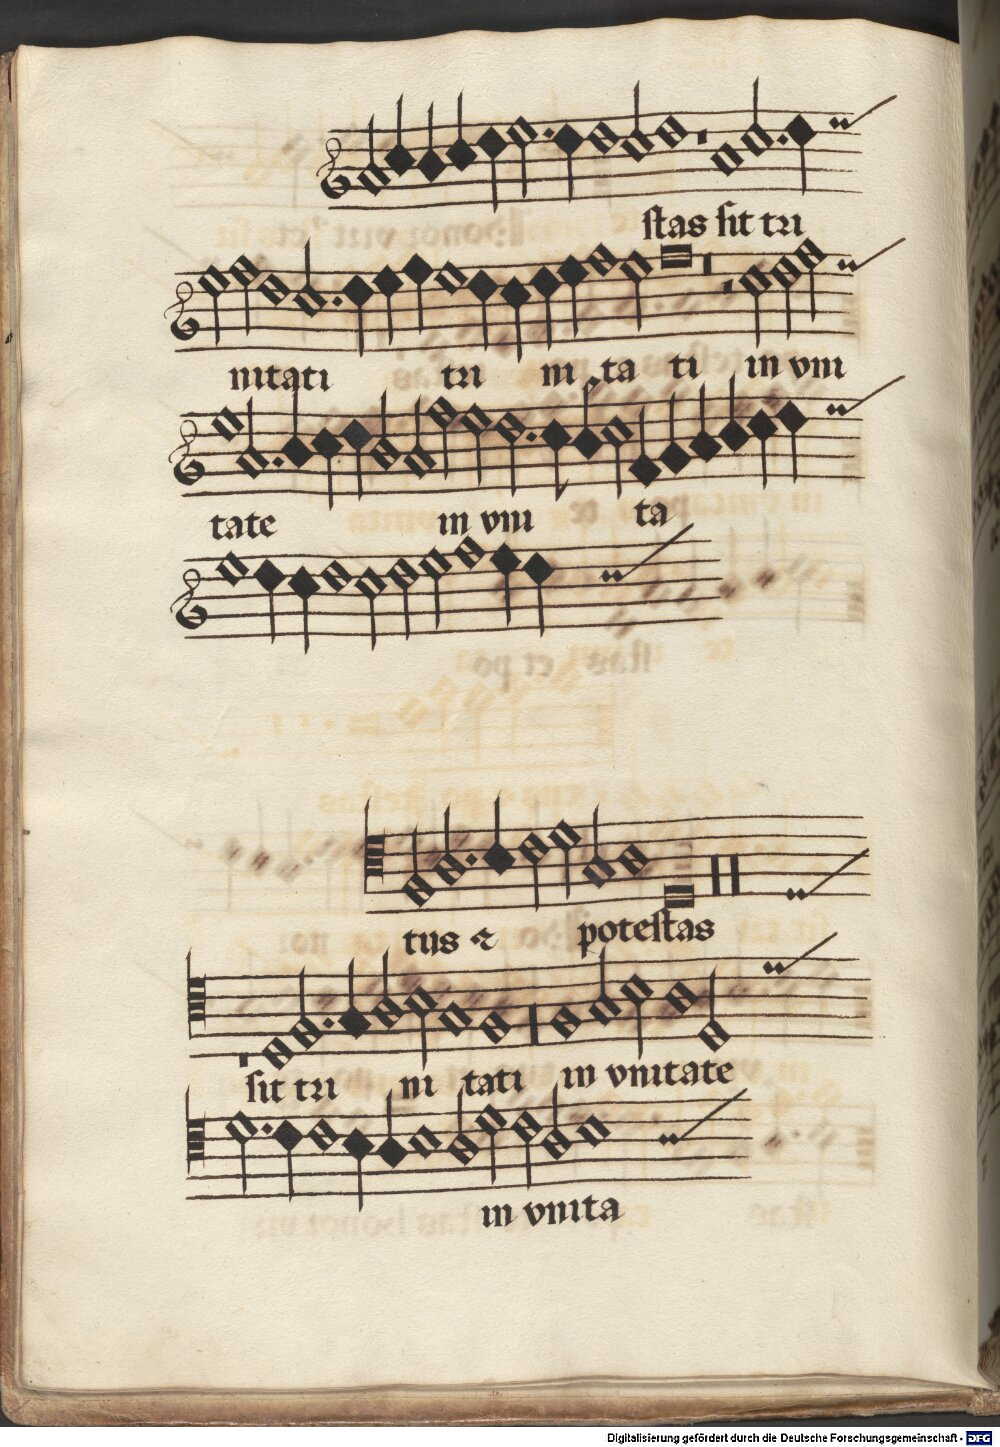 stas sit tri
nitati tri ni ta ti in vni
tate in vni ta
tus ⁊ potestas
sit tri ni tati in vnitate
in vnita
Digitalisierung gefördert durch die Deutsche Forschungsgemeinschaft - DFG